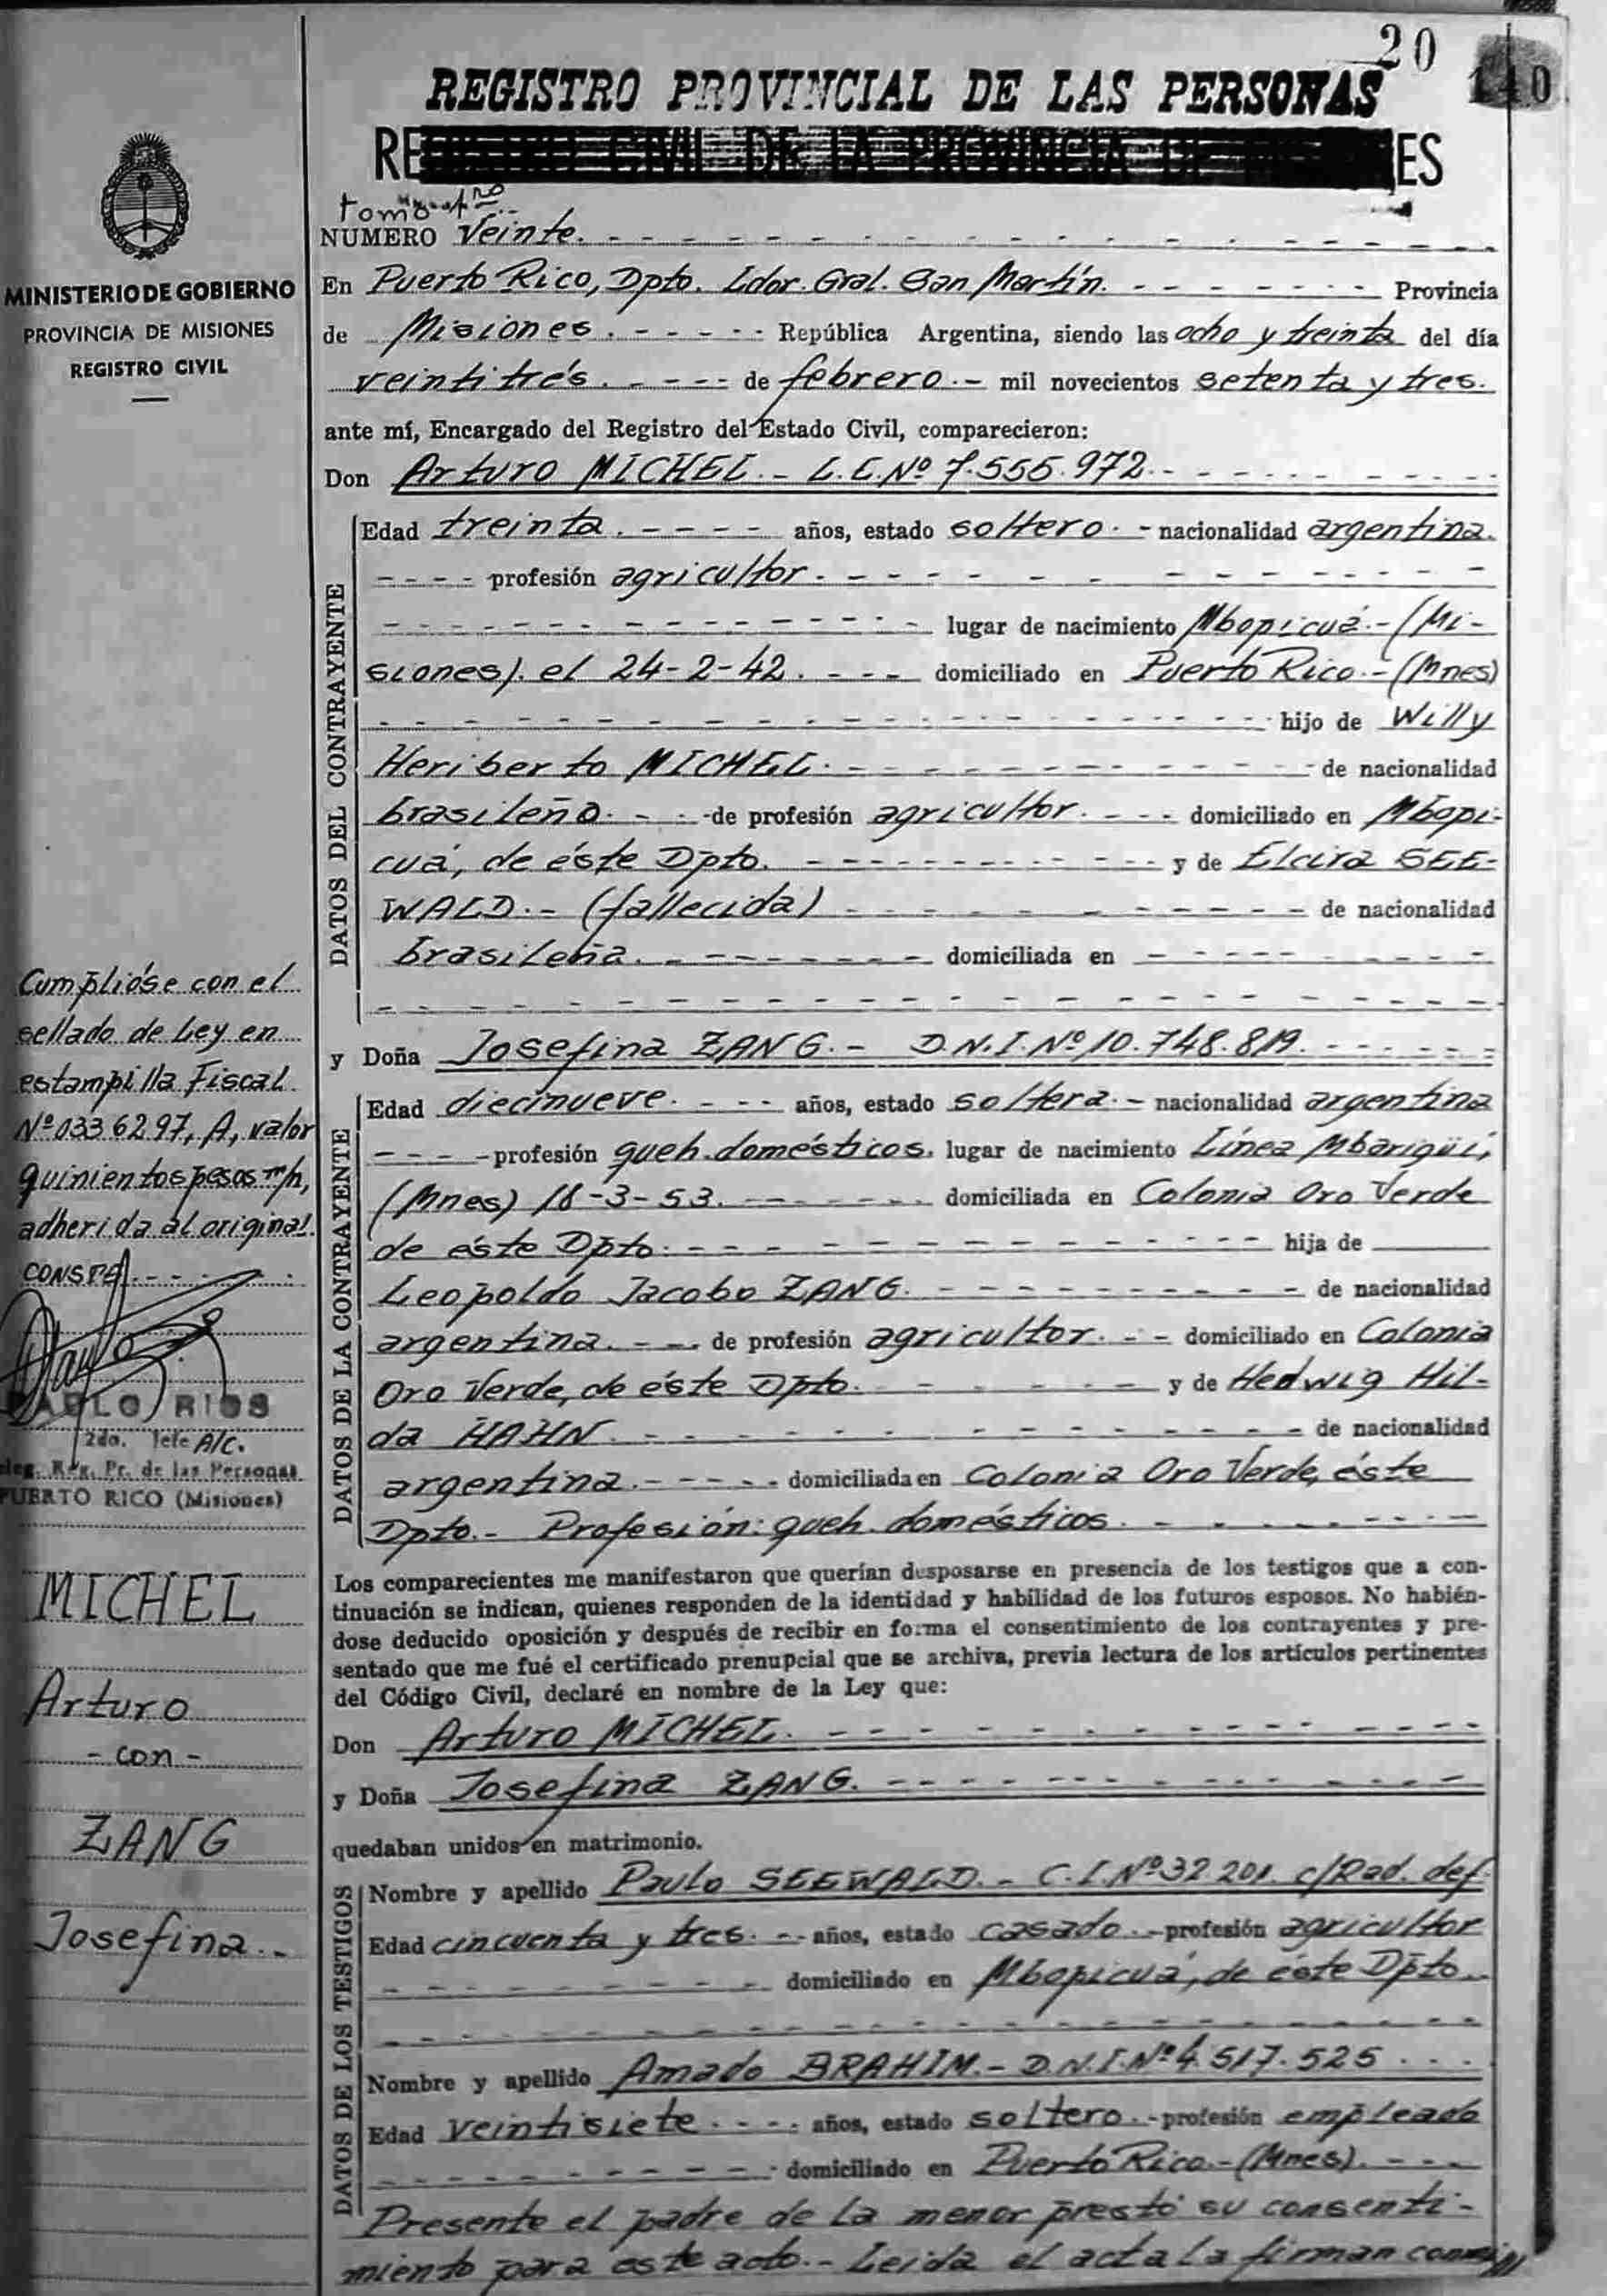 20
REGISTRO PROVINCIAL DE LAS PERSONAS
tomo 1ro
NUMERO Veinte.
En Puerto Rico, Dpto. Ldor. Gral. San Martín. Provincia
de Misiones. República Argentina, siendo las ocho y treinta del día
veintitrés. de febrero.- mil novecientos setenta y tres.
ante mí, Encargado del Registro del Estado Civil, comparecieron:
Don Arturo MICHEL.- L.E.Nº 7.555.972.
DATOS DEL CONTRAYENTE
Edad treinta. años, estado soltero.- nacionalidad argentina.
profesión agricultor.
lugar de nacimiento Mbopicuá.-(Mi-
siones). el 24-2-42. domiciliado en Puerto Rico.-(Mnes)
hijo de Willy
Heriberto MICHEL. de nacionalidad
brasileño. de profesión agricultor. domiciliado en Mbopi-
cuá, de éste Dpto. y de Elcira SEE-
WALD.- (fallecida) de nacionalidad
brasileña. domiciliada en
y Doña Josefina ZANG.- D.N.I.Nº 10.748.819.
DATOS DE LA CONTRAYENTE
Edad diecinueve. años, estado soltera.- nacionalidad argentina
profesión queh.domésticos. lugar de nacimiento Línea Mbarigüí,
(Mnes) 18-3-53. domiciliada en Colonia Oro Verde
de éste Dpto. hija de
Leopoldo Jacobo ZANG. de nacionalidad
argentina. de profesión agricultor. domiciliado en Colonia
Oro Verde, de éste Dpto. y de Hedwig Hil-
da HAHN. de nacionalidad
argentina. domiciliada en Colonia Oro Verde, éste
Dpto.- Profesión: queh. domésticos.
Los comparecientes me manifestaron que querían desposarse en presencia de los testigos que a con-
tinuación se indican, quienes responden de la identidad y habilidad de los futuros esposos. No habién-
dose deducido oposición y después de recibir en forma el consentimiento de los contrayentes y pre-
sentado que me fué el certificado prenupcial que se archiva, previa lectura de los artículos pertinentes
del Código Civil, declaré en nombre de la Ley que:
Don Arturo MICHEL.
y Doña Josefina ZANG.
quedaban unidos en matrimonio.
DATOS DE LOS TESTIGOS
Nombre y apellido Paulo SEEWALD.- C.I.Nº 32 201. c/Rad. def.
Edad cincuenta y tres. años, estado casado.- profesión agricultor
domiciliado en Mbopicuá, de éste Dpto.
Nombre y apellido Amado BRAHIM.- D.N.I.Nº 4.517.525
Edad veintisiete. años, estado soltero.- profesión empleado
domiciliado en Puerto Rico.-(Mnes).
Presente el padre de la menor prestó su consenti-
miento para este acto.- Leída el acta la firman
MINISTERIO DE GOBIERNO
PROVINCIA DE MISIONES
REGISTRO CIVIL
Cumplióse con el
sellado de Ley en
estampilla Fiscal
Nº 0336297, A, valor
quinientos pesos m/n,
adherida al original.
CONSTE.
PABLO RIOS
2do. Jefe A/C.
Deleg. Reg. Pr. de las Personas
PUERTO RICO (Misiones)
MICHEL
Arturo
- con -
ZANG
Josefina.-